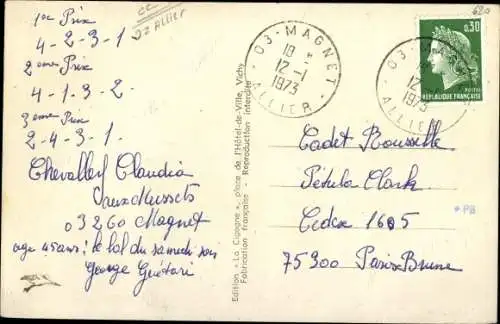 1er Prix
4 - 2 - 3 - 1
2ème Prix
4 - 1 - 3 - 2 -
3ème Prix
2 - 4 - 3 - 1 -
Chevalley Claudia
03260 Magnet
age 45 ans : le bal du samedi soir
George Guétari
Allier
Edition « La Cigogne », place de l'Hôtel-de-Ville, Vichy
Fabrication française - Reproduction interdite
03 - MAGNET
18
12 - 1
1973
ALLIER
03 - MAGNET
12
1973
ALLIER
0,30
REPUBLIQUE FRANÇAISE
620
Cadet Rousselle
Pétula Clark
Cedex 1605
75300 Paris Brune